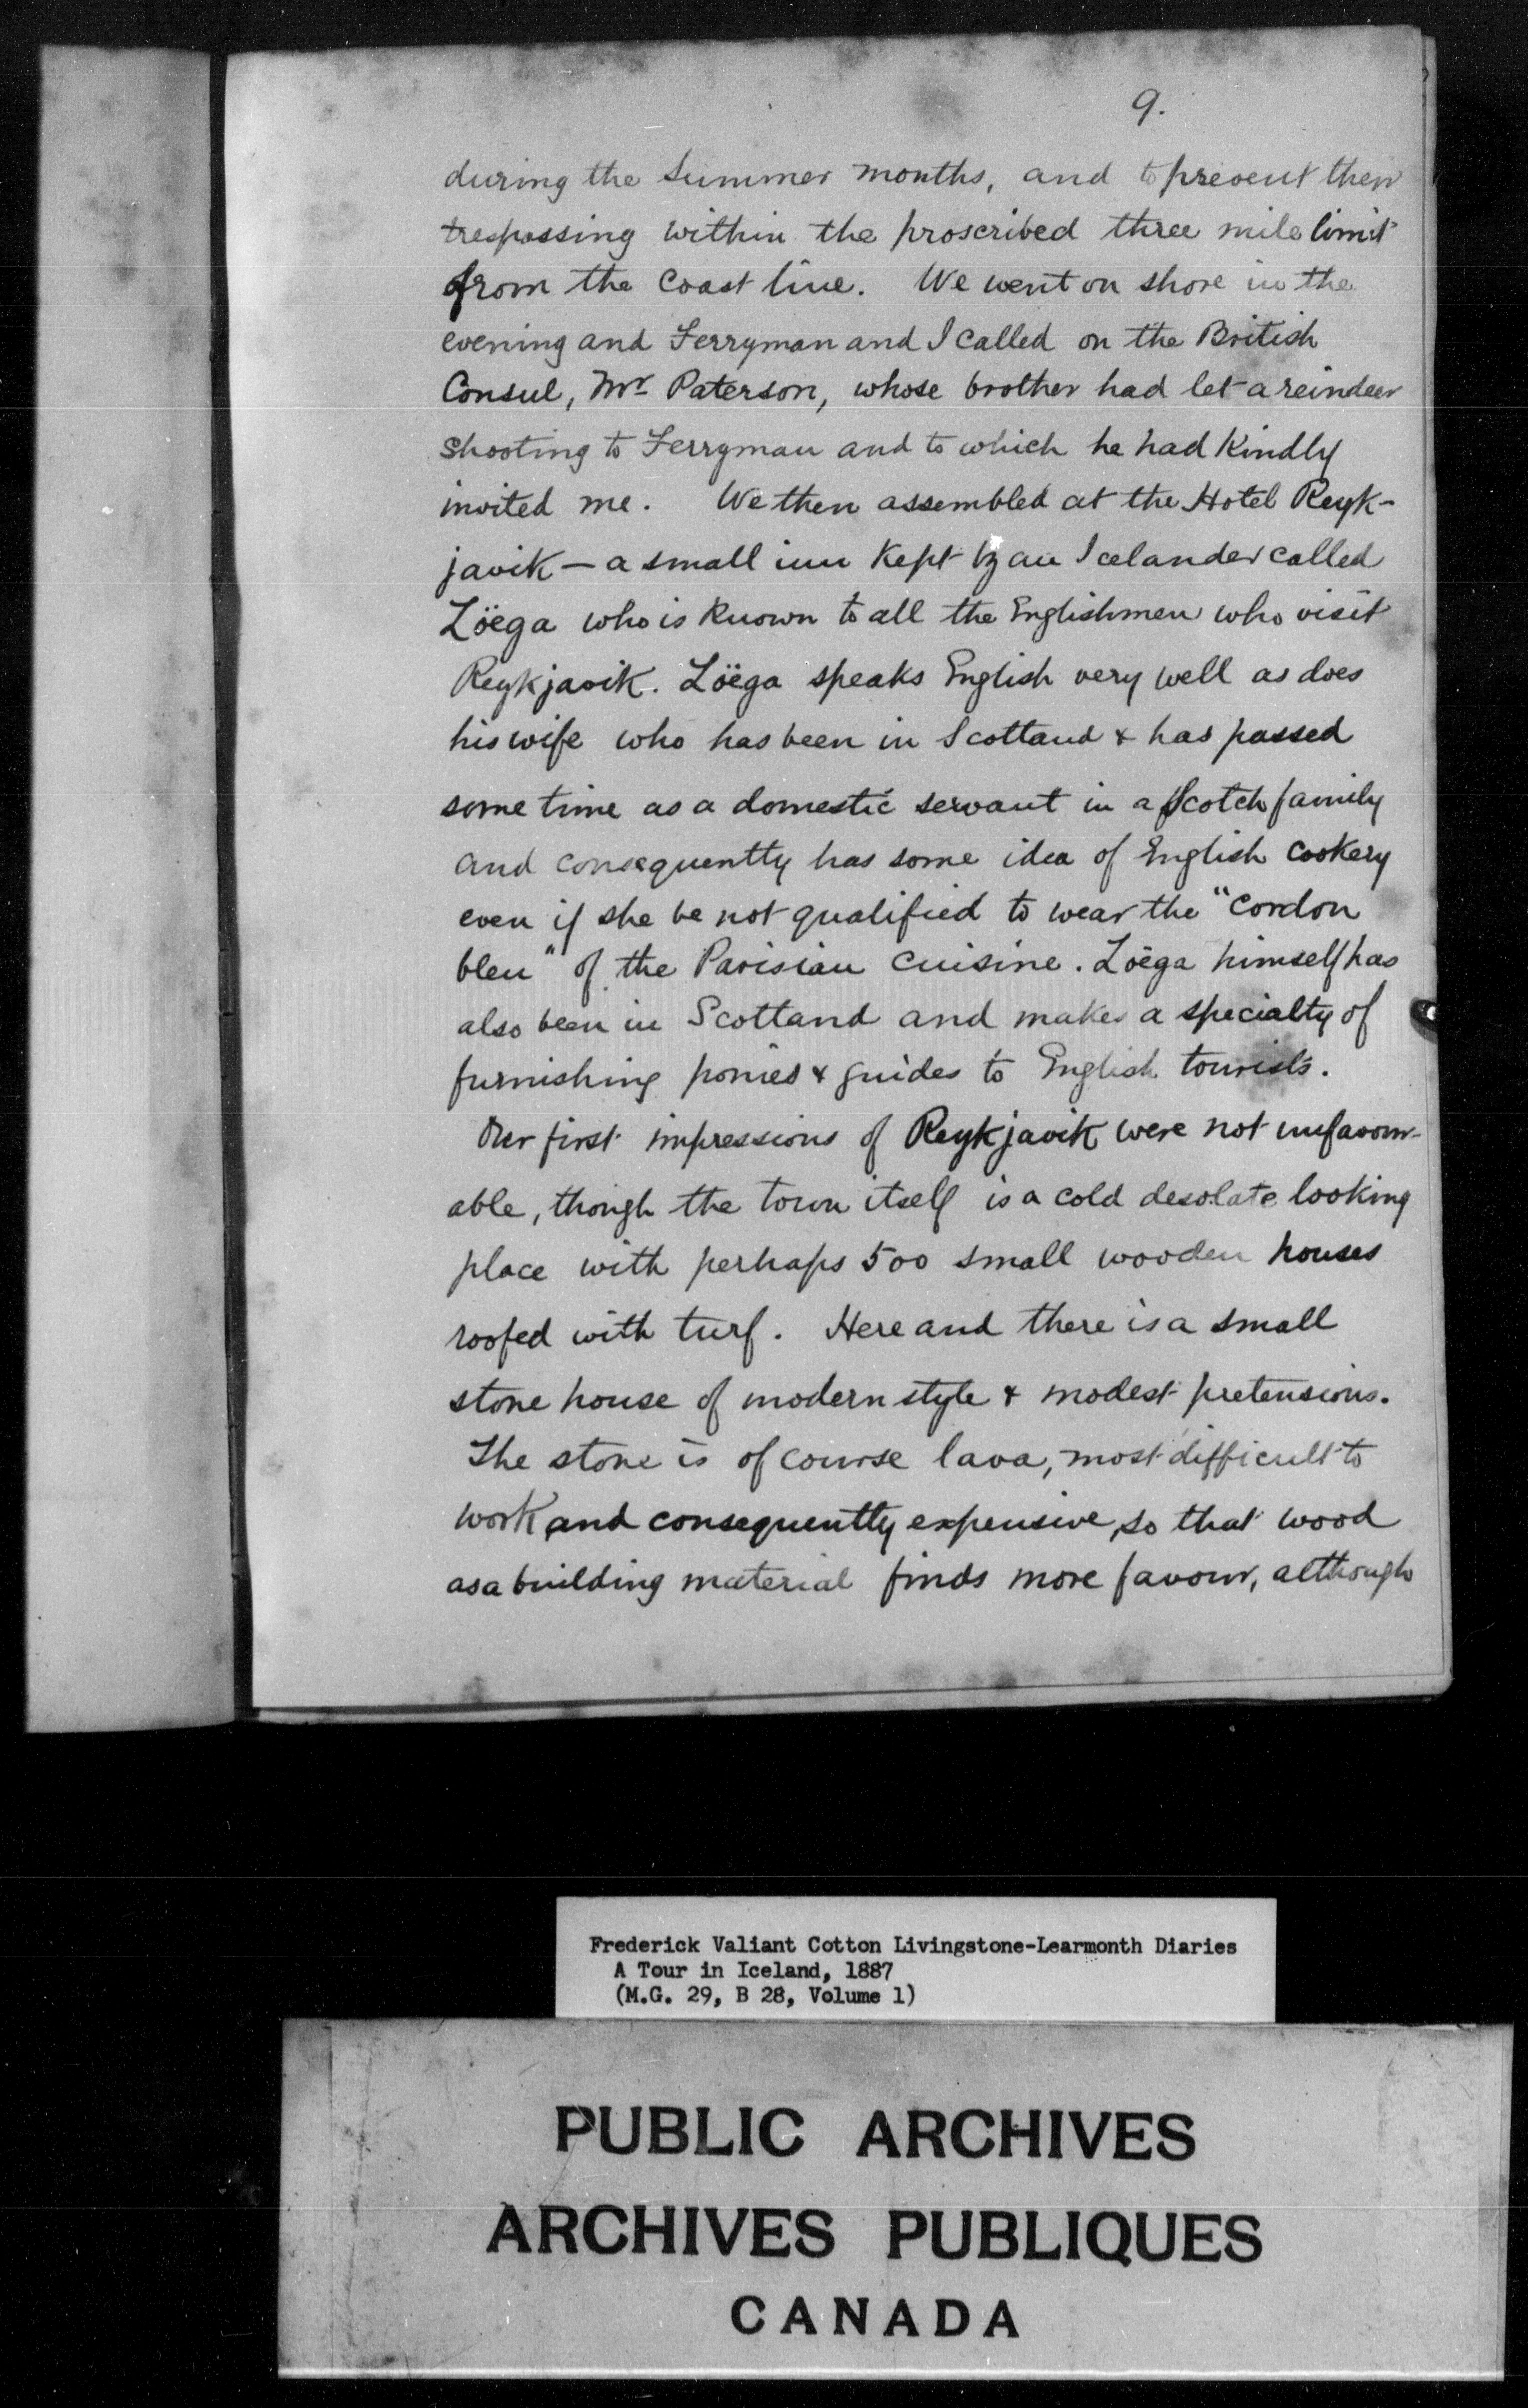 9.
during the Summer months, and to prevent their
trespassing within the proscribed three mile limit
from the coast line. We went on shore in the
evening and Ferryman and I called on the British
Consul, Mr Paterson, whose brother had let a reindeer
shooting to Ferryman and to which he had kindly
invited me. We then assembled at the Hotel Reyk-
javik — a small inn kept by an Icelander called
Zöega who is known to all the Englishmen who visit
Reykjavik. Zöega speaks English very well as does
his wife who has been in Scotland & has passed
some time as a domestic servant in a Scotch family
and consequently has some idea of English cookery
even if she be not qualified to wear the "cordon
bleu" of the Parisian cuisine. Zöega himself has
also been in Scotland and makes a specialty of
furnishing ponies & guides to English tourists.
Our first impressions of Reykjavik were not unfavour-
able, though the town itself is a cold desolate looking
place with perhaps 500 small wooden houses
roofed with turf. Here and there is a small
stone house of modern style & modest pretensions.
The stone is of course lava, most difficult to
work and consequently expensive, so that wood
as a building material finds more favour, although
Frederick Valiant Cotton Livingstone-Learmonth Diaries
A Tour in Iceland, 1887
(M.G. 29, B 28, Volume 1)
PUBLIC ARCHIVES
ARCHIVES PUBLIQUES
CANADA